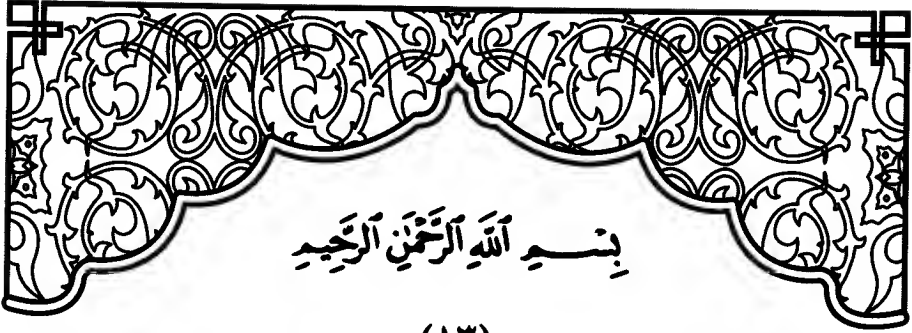 بِسْمِ ٱللَّهِ ٱلرَّحْمَٰنِ ٱلرَّحِيمِ
(١٣)